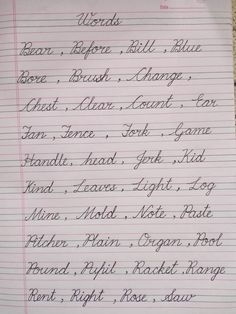 Words
Bear, Before, Bill, Blue
Bore, Brush, Change,
Chest, Clear, Count, Ear
Fan, Fence, Fork, Game
Handle, head, Jerk, Kid
Kind, Leaves, Light, Log
Mine, Mold, Note, Paste
Pitcher, Plain, Organ, Pool
Pound, Pupil, Racket, Range
Rent, Right, Rose, Saw